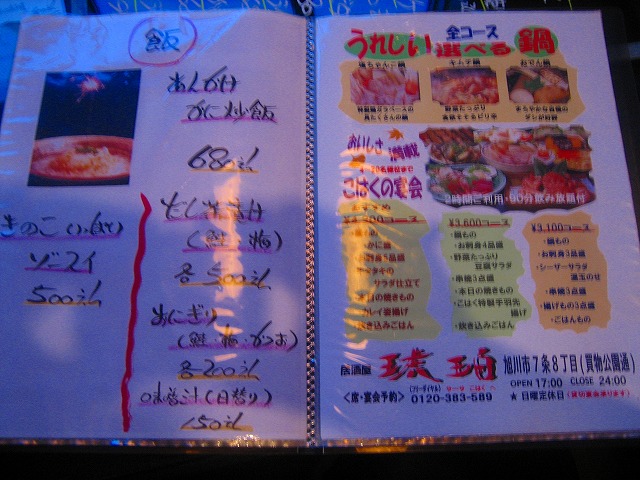 飯
あんかけ
かに炒飯
680えん
だし茶漬け
(鮭・梅)
各500えん
おにぎり
(鮭・梅・かつお)
各200えん
味噌汁(日替り)
150えん
きのこ
ゾースイ
500えん
全コース
うれしい選べる鍋
キムチ鍋
おでん鍋
おいしさ満載
こはくの宴会
2時間ご利用・90分飲み放題付
サラダ仕立て
・本日の焼きもの
・カレイ姿揚げ
・炊き込みごはん
¥3,600コース
・鍋もの
・お刺身4品盛
・野菜たっぷり
豆腐サラダ
・串焼3点盛
・本日の焼きもの
・こはく特製手羽先
揚げ
・炊き込みごはん
¥3,100コース
・鍋もの
・お刺身3点盛
・シーザーサラダ
温玉のせ
・串焼3点盛
・揚げもの3点盛
・ごはんもの
居酒屋 琥珀 旭川市7条8丁目(買物公園通)
OPEN 17:00 CLOSE 24:00
<席・宴会予約> (フリーダイヤル) 0120-383-589
★日曜定休日(貸切宴会承ります)